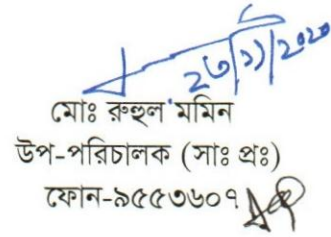 ২৩/১১/২০২০
মোঃ রুহুল মমিন
উপ-পরিচালক (সাঃ প্রঃ)
ফোন-৯৫৫৩৬০৭